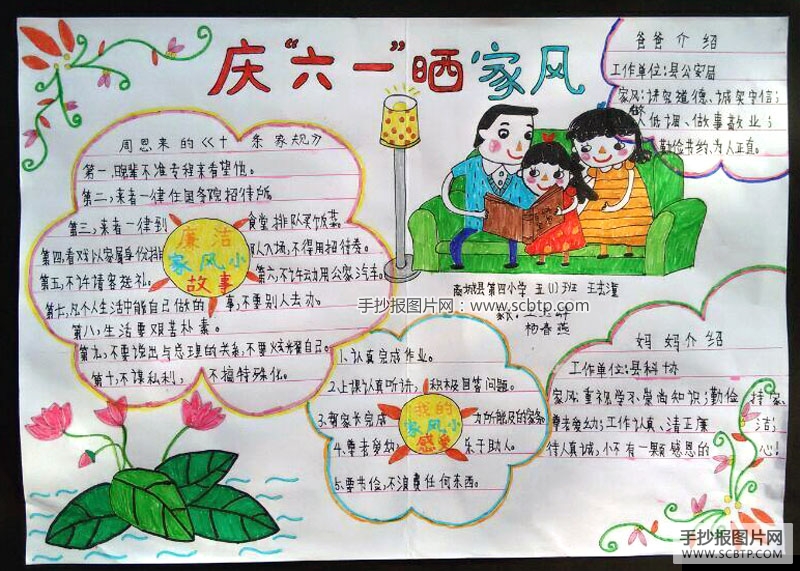 庆“六一”晒家风
爸爸介绍
工作单位:县公安局
家风:讲究道德、诚实守信;
做人低调、做事敬业;
勤俭节约、为人正直。
周恩来的《十条家规》
第一,晚辈不准专程来看望他。
第二,来者一律住国务院招待所
第三,来者一律到食堂排队买饭菜。
第四,看戏以家属身份排队入场,不得用招待券。
第五,不许请客送礼。
第六,不许动用公家汽车。
第七,凡个人生活中能自己做的事,不要别人去办。
第八,生活要艰苦朴素。
第九,不要说出与总理的关系,不要炫耀自己。
第十,不谋私利,不搞特殊化。
廉洁
家风小
故事
商城县第四小学 五(1)班
杨春燕
手抄报图片网:www.scbtp.com
1.认真完成作业。
2.上课认真听讲,积极回答问题。
3.帮家长完成力所能及的家务
4.尊老爱幼,乐于助人。
5.要节俭,不浪费任何东西。
我的
家风小
感受
妈妈介绍
工作单位:县科协
家风:重视学习、崇尚知识;勤俭持家、
尊老爱幼;工作认真、清正廉洁;
待人真诚,怀有一颗感恩的心!
手抄报图片网
WWW.SCBTP.COM